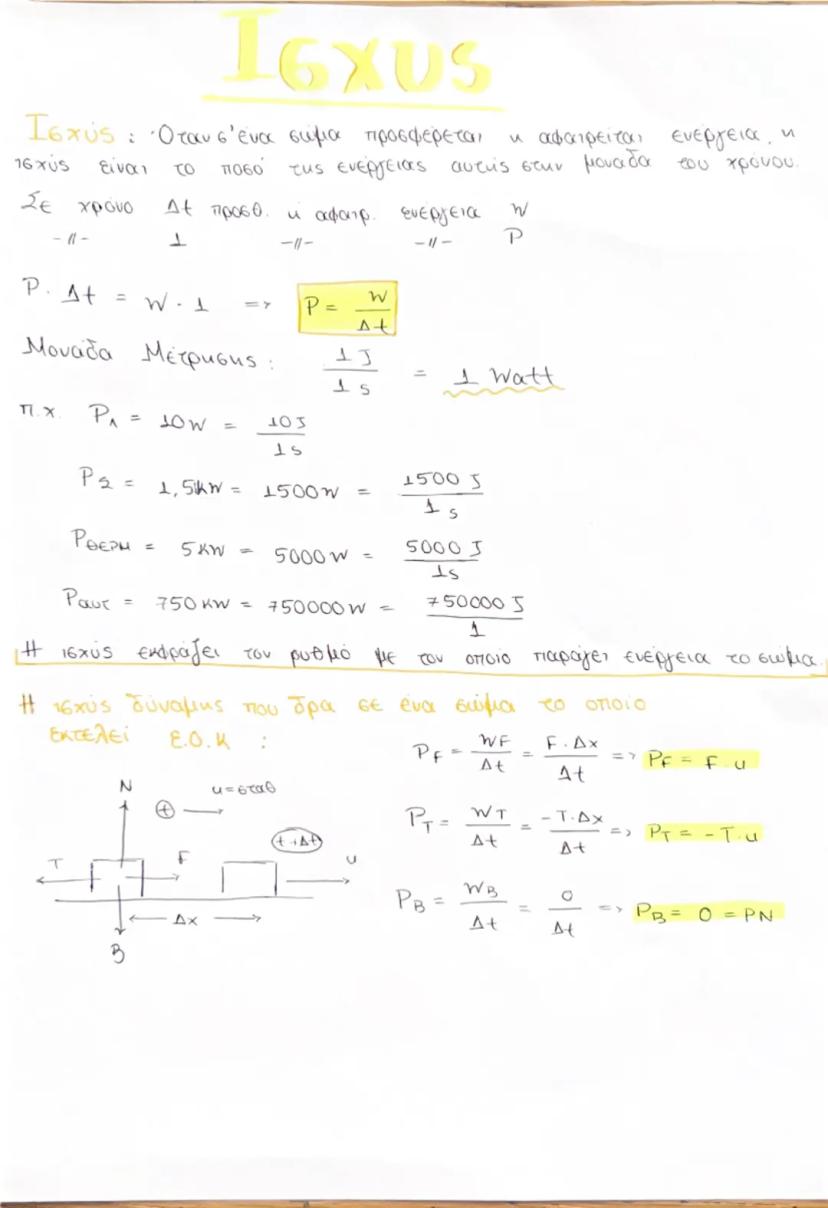 Ισχυς
Ισχύς : Όταν σ' ένα σώμα προσφέρεται κ αφαιρείται ενέργεια, κ
ισχύς είναι το ποσό της ενέργειας αυτής στην μονάδα του χρόνου.
Σε χρόνο Δt προσθ. κ αφαιρ. ενέργεια W
-//- 1 -//- -//- P
P. Δt = W · 1 => P = W/Δt
Μονάδα Μέτρησης : 1 J/1 s = 1 Watt
π.χ. P1 = 10W = 10J/1s
P2 = 1,5kW = 1500W = 1500 J/1 s
Pθερμ = 5KW = 5000W = 5000 J/1s
Pαυτ = 750KW = 750000W = 750000 J/1
Η ισχύς εκφράζει τον ρυθμό με τον οποίο παράγει ενέργεια το σώμα.
Η ισχύς δύναμης που δρα σε ένα σώμα το οποίο
εκτελεί Ε.Ο.Κ :
PF = WF/Δt = F. Δx/Δt => PF = F. u
N
u=σταθ
+
PT = WT/Δt = -T.Δx/Δt => PT = -T.u
t+Δt
T F u
PB = WB/Δt = 0/Δt => PB = 0 = PN
Δx
B